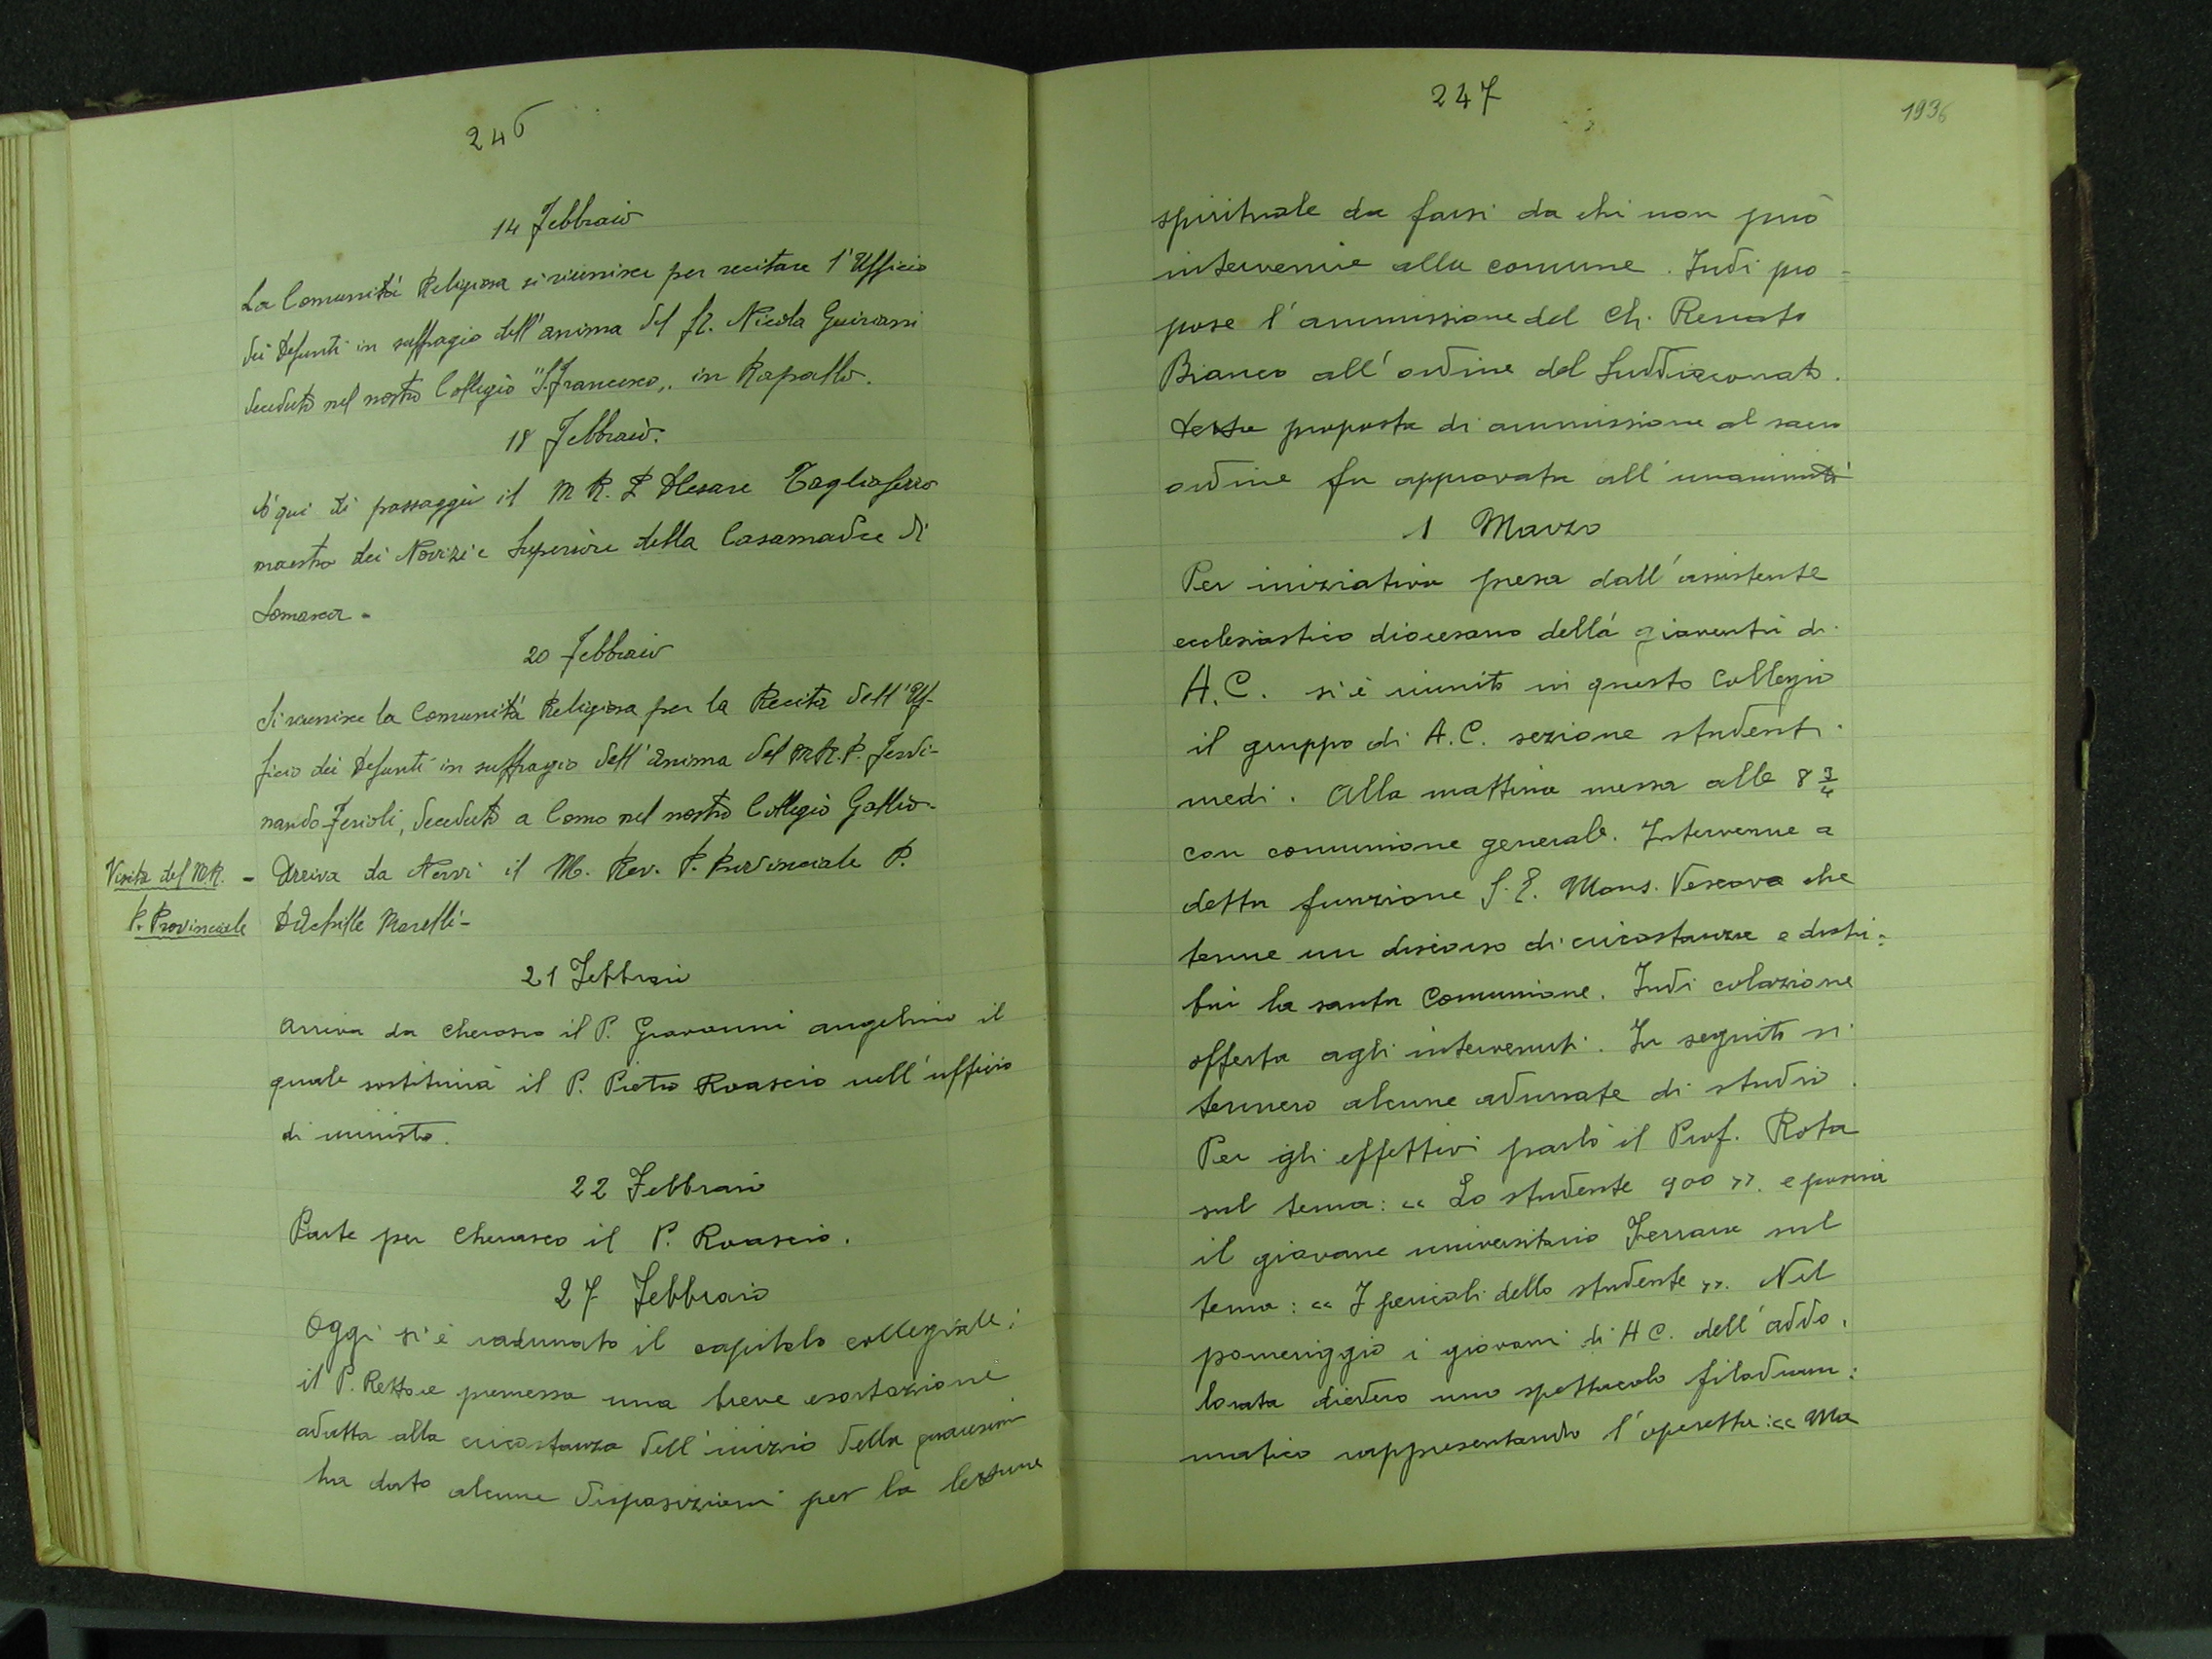 246
14 Febbraio
La Comunità Religiosa si riunisce per recitare l'Ufficio
dei Defunti in suffragio dell'anima del fr. Nicola
deceduto nel nostro Collegio "S. Francesco,, in Rapallo.
18 Febbraio.
È qui di passaggio il M. R. P. Cesare Tagliaferro
maestro dei Novizi e Superiore della Casamadre di
Somasca -
20 Febbraio
Si riunisce la Comunità Religiosa per la Recita dell'Uf-
ficio dei Defunti in suffragio dell'anima del M.R.P. Ferdi-
nando Ferioli, deceduto a Como nel nostro Collegio Gallio -
Visita del M.R. - Arriva da Nervi il M. Rev. P. Provinciale P.
P. Provinciale D. Achille Marelli -
21 Febbraio
Arriva da Cherasco il P. Giovanni Angelino il
quale sostituirà il P. Pietro Roascio nell'ufficio
di ministro.
22 Febbraio
Parte per Cherasco il P. Roascio.
27 Febbraio
Oggi si è radunato il capitolo collegiale:
il P. Rettore premessa una breve esortazione
adatta alla circostanza dell'inizio della quaresima
ha dato alcune disposizioni per la lettura
247
1936
spirituale da farsi da chi non può
intervenire alla comune. Indi pro =
pose l'ammissione del Ch. Renato
Bianco all'ordine del Suddiaconato.
Detta proposta di ammissione al sacro
ordine fu approvata all'unanimità
1 Marzo
Per iniziativa presa dall'assistente
ecclesiastico diocesano della gioventù di
A.C. si è riunito in questo Collegio
il gruppo di A.C. sezione studenti
medi. Alla mattina messa alle 8 3/4
con comunione generale. Intervenne a
detta funzione S. E. Mons. Vescovo che
tenne un discorso di circostanza e distri =
buì la santa Comunione. Indi colazione
offerta agli intervenuti. In seguito si
tennero alcune adunate di studio.
Per gli effettivi parlò il Prof. Rota
sul tema: « Lo studente 900 ». e poscia
il giovane universitario Ferrare sul
tema: « I pericoli dello studente ». Nel
pomeriggio i giovani di A C. dell'addo.
lorata diedero uno spettacolo filodram:
matico rappresentando l'operetta: « Ma